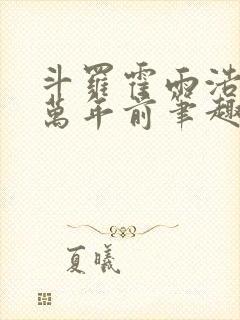 斗羅霍雨浩
萬年前筆趣
夏曦